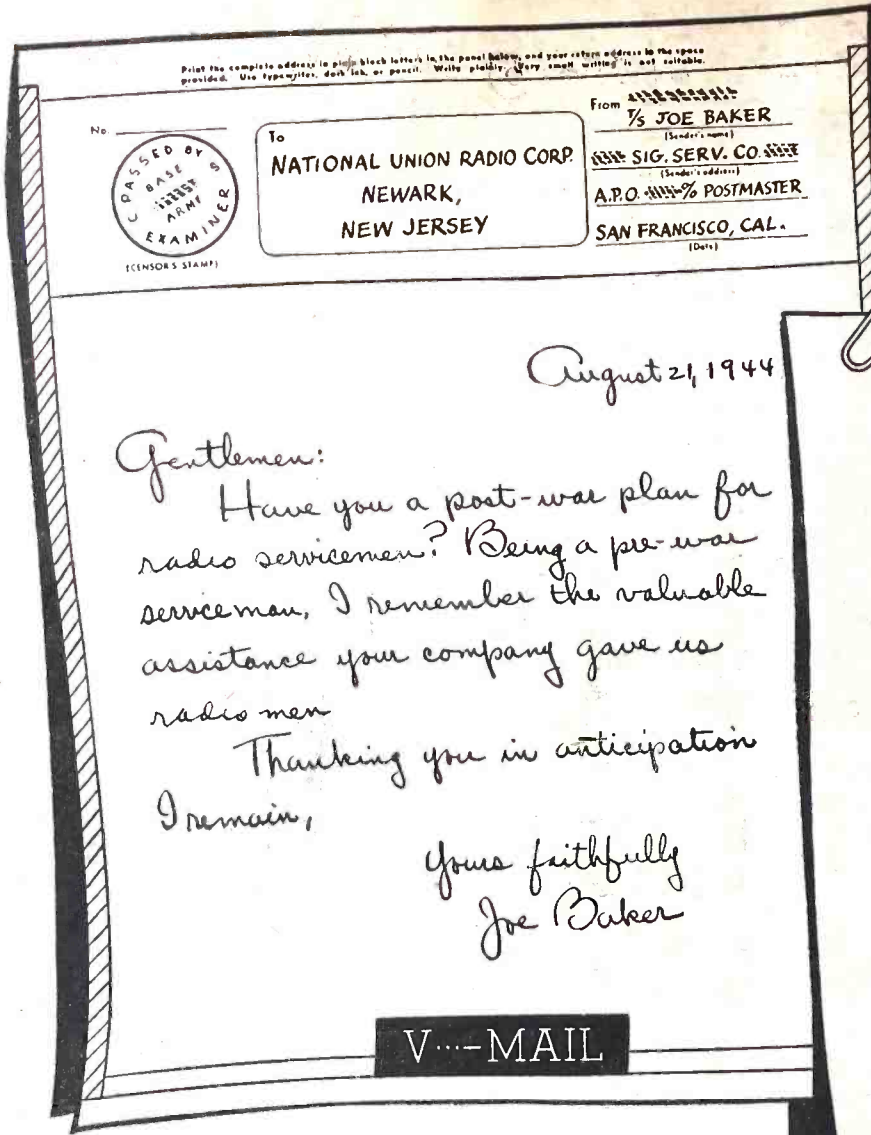 Print the complete address in plain block letters in the panel below, and your return address in the space
provided. Use typewriter, dark ink, or pencil. Write plainly. Very small writing is not suitable.
No.
PASSED BY
BASE
ARMY
EXAMINER
(CENSOR'S STAMP)
To
NATIONAL UNION RADIO CORP.
NEWARK,
NEW JERSEY
From
T/5 JOE BAKER
(Sender's name)
SIG. SERV. CO.
(Sender's address)
A.P.O. % POSTMASTER
SAN FRANCISCO, CAL.
(Date)
August 21, 1944
Gentlemen:
Have you a post-war plan for
radio servicemen? Being a pre-war
serviceman, I remember the valuable
assistance your company gave us
radio men
Thanking you in anticipation
I remain,
Yours faithfully
Joe Baker
V···-MAIL